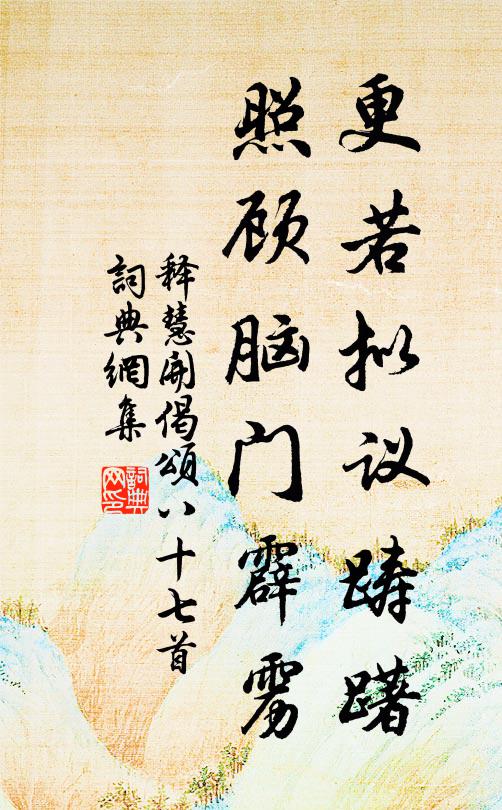 更若拟议踌躇
照顾脑门霹雳
释慧開偈頌八十七首
詞典網集
詞典
网印